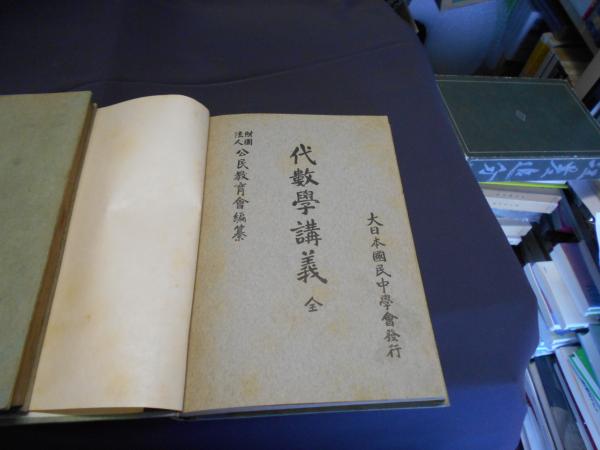 大日本國民中學會發行
代數學講義 全
財團法人 公民教育會編纂